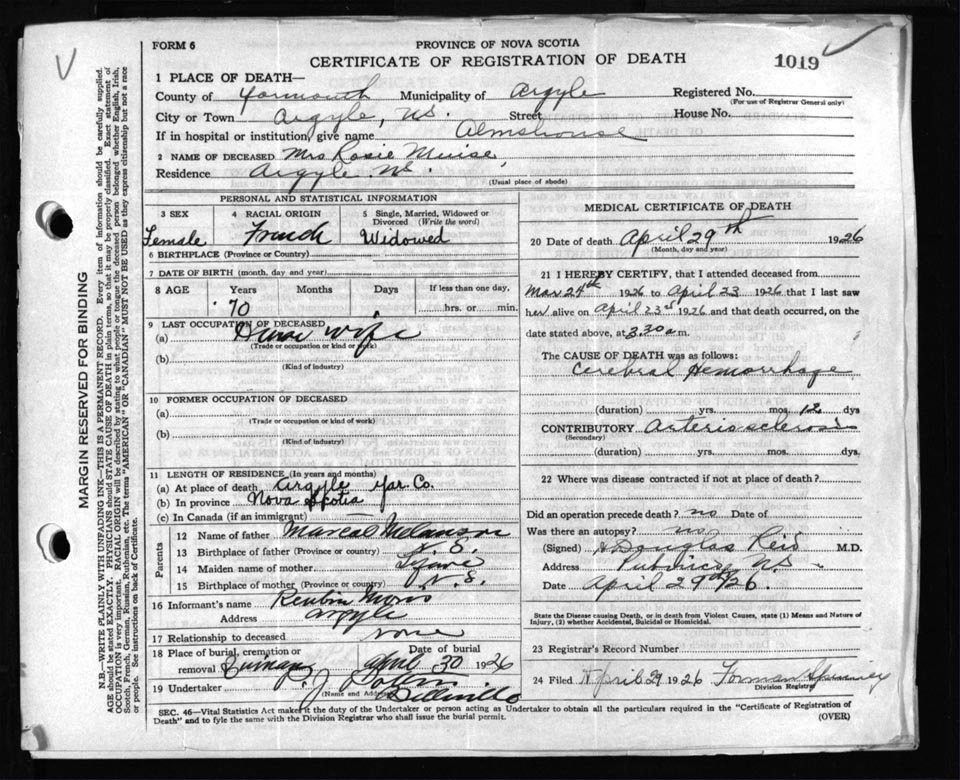 FORM 6
PROVINCE OF NOVA SCOTIA
CERTIFICATE OF REGISTRATION OF DEATH
1019
1 PLACE OF DEATH—
County of Yarmouth Municipality of Argyle Registered No.
(For use of Registrar General only)
City or Town Argyle, N.S. Street House No.
If in hospital or institution, give name Almshouse
2 NAME OF DECEASED Mrs Rosie Muise,
Residence Argyle N.S.
(Usual place of abode)
PERSONAL AND STATISTICAL INFORMATION
3 SEX
Female
4 RACIAL ORIGIN
French
5 Single, Married, Widowed or Divorced (Write the word)
Widowed
6 BIRTHPLACE (Province or Country)
7 DATE OF BIRTH (month, day and year)
8 AGE Years Months Days If less than one day,
70 hrs. or min.
9 LAST OCCUPATION OF DECEASED
(a) House wife
(Trade or occupation or kind of work)
(b)
(Kind of industry)
10 FORMER OCCUPATION OF DECEASED
(a)
(Trade or occupation or kind of work)
(b)
(Kind of industry)
11 LENGTH OF RESIDENCE (In years and months)
(a) At place of death Argyle Yar. Co.
(b) In province Nova Scotia
(c) In Canada (if an immigrant)
Parents
12 Name of father Marcal Melanson
13 Birthplace of father (Province or country) N.S.
14 Maiden name of mother
15 Birthplace of mother (Province or country) N.S.
16 Informant's name Reubin
Address Argyle
17 Relationship to deceased none
18 Place of burial, cremation or removal
Date of burial
April 30 1926
19 Undertaker
(Name and Address)
MEDICAL CERTIFICATE OF DEATH
20 Date of death April 29th 1926
(Month, day and year)
21 I HEREBY CERTIFY, that I attended deceased from
Mar 24th 1926 to April 23 1926 that I last saw
her alive on April 23rd 1926 and that death occurred, on the
date stated above, at 3.30 a m.
The CAUSE OF DEATH was as follows:
Cerebral Hemorrhage
(duration) yrs. mos. 12 dys
CONTRIBUTORY Arterio sclerosis
(Secondary)
(duration) yrs. mos. dys.
22 Where was disease contracted if not at place of death?
Did an operation precede death? no Date of
Was there an autopsy? no
(Signed) Douglas Reid M.D.
Address Pubnico, N.S.
Date April 29th/26.
State the Disease causing Death, or in death from Violent Causes, state (1) Means and Nature of
Injury, (2) whether Accidental, Suicidal or Homicidal.
23 Registrar's Record Number
24 Filed April 29 1926 Forman Spinney
Division Registrar
SEC. 46—Vital Statistics Act makes it the duty of the Undertaker or person acting as Undertaker to obtain all the particulars required in the "Certificate of Registration of
Death" and to fyle the same with the Division Registrar who shall issue the burial permit.
(OVER)
MARGIN RESERVED FOR BINDING
N.B.—WRITE PLAINLY WITH UNFADING INK—THIS IS A PERMANENT RECORD. Every item of information should be carefully supplied.
AGE should be stated EXACTLY. PHYSICIANS should STATE CAUSE OF DEATH in plain terms, so that it may be properly classified. Exact statement of
OCCUPATION is very important. RACIAL ORIGIN will be described by stating to what people or tongue the deceased person belonged whether English, Irish,
Scotch, French, German, Russian, Ruthenian, etc. The terms "AMERICAN" OR "CANADIAN" MUST NOT BE USED as they express citizenship but not a race
or people. See instructions on back of Certificate.